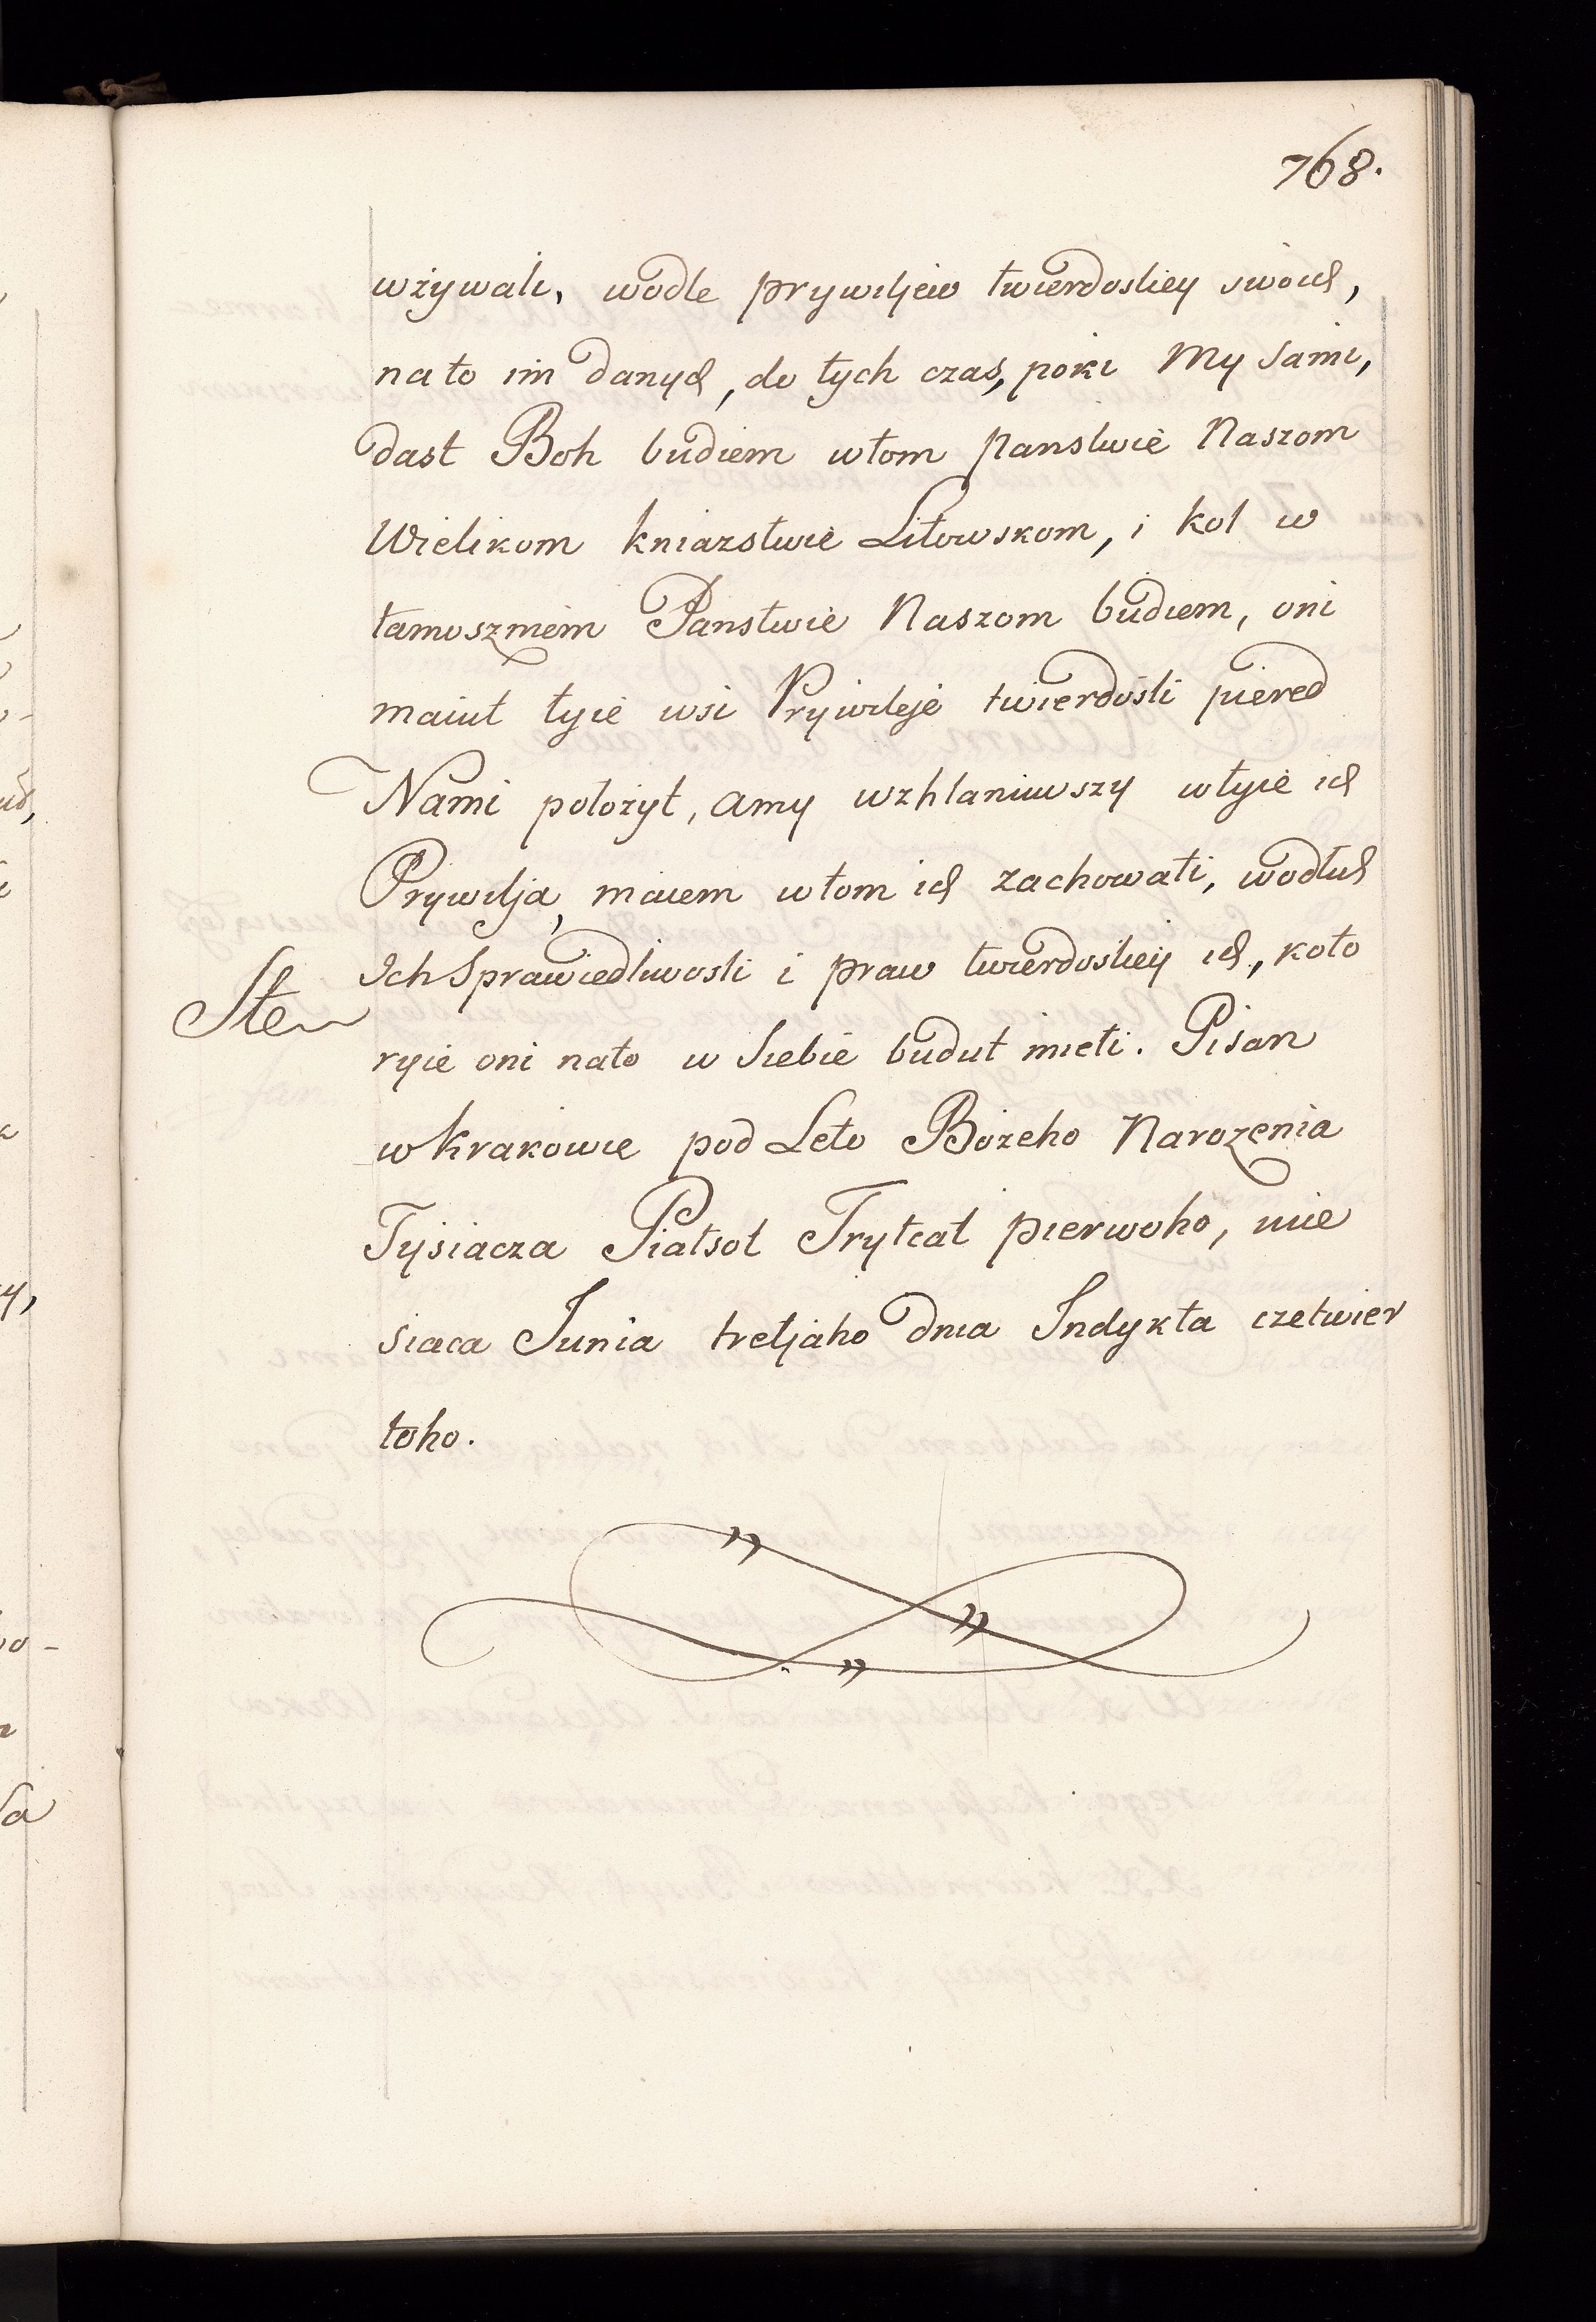 768.
wżywali, wodle prywiljew twierdostiey swoich,
na to im danych, do tych czas, poki My Sami,
dast Boh budiem wtom Panstwie Naszom
Wielikom kniazstwie Litowskom, i kol w
tamoszniem Panstwie Naszom budiem, oni
maiut tyie wsi Prywileje twierdosti pered
Nami położyt, a my wzhlanuwszy w tyie ich
Prywilja, maiem w tom ich zachowati, wodluh
Ich Sprawiedliwosti i praw twierdostiey ich, koto
ryie oni nato w Siebie budut mieti. Pisan
w Krakowie pod Leto Bożeho Narożenia
Tysiacza Piatsot Trytcat pierwoho, mie
siaca Junia tretjaho dnia Indykta czetwier
toho.